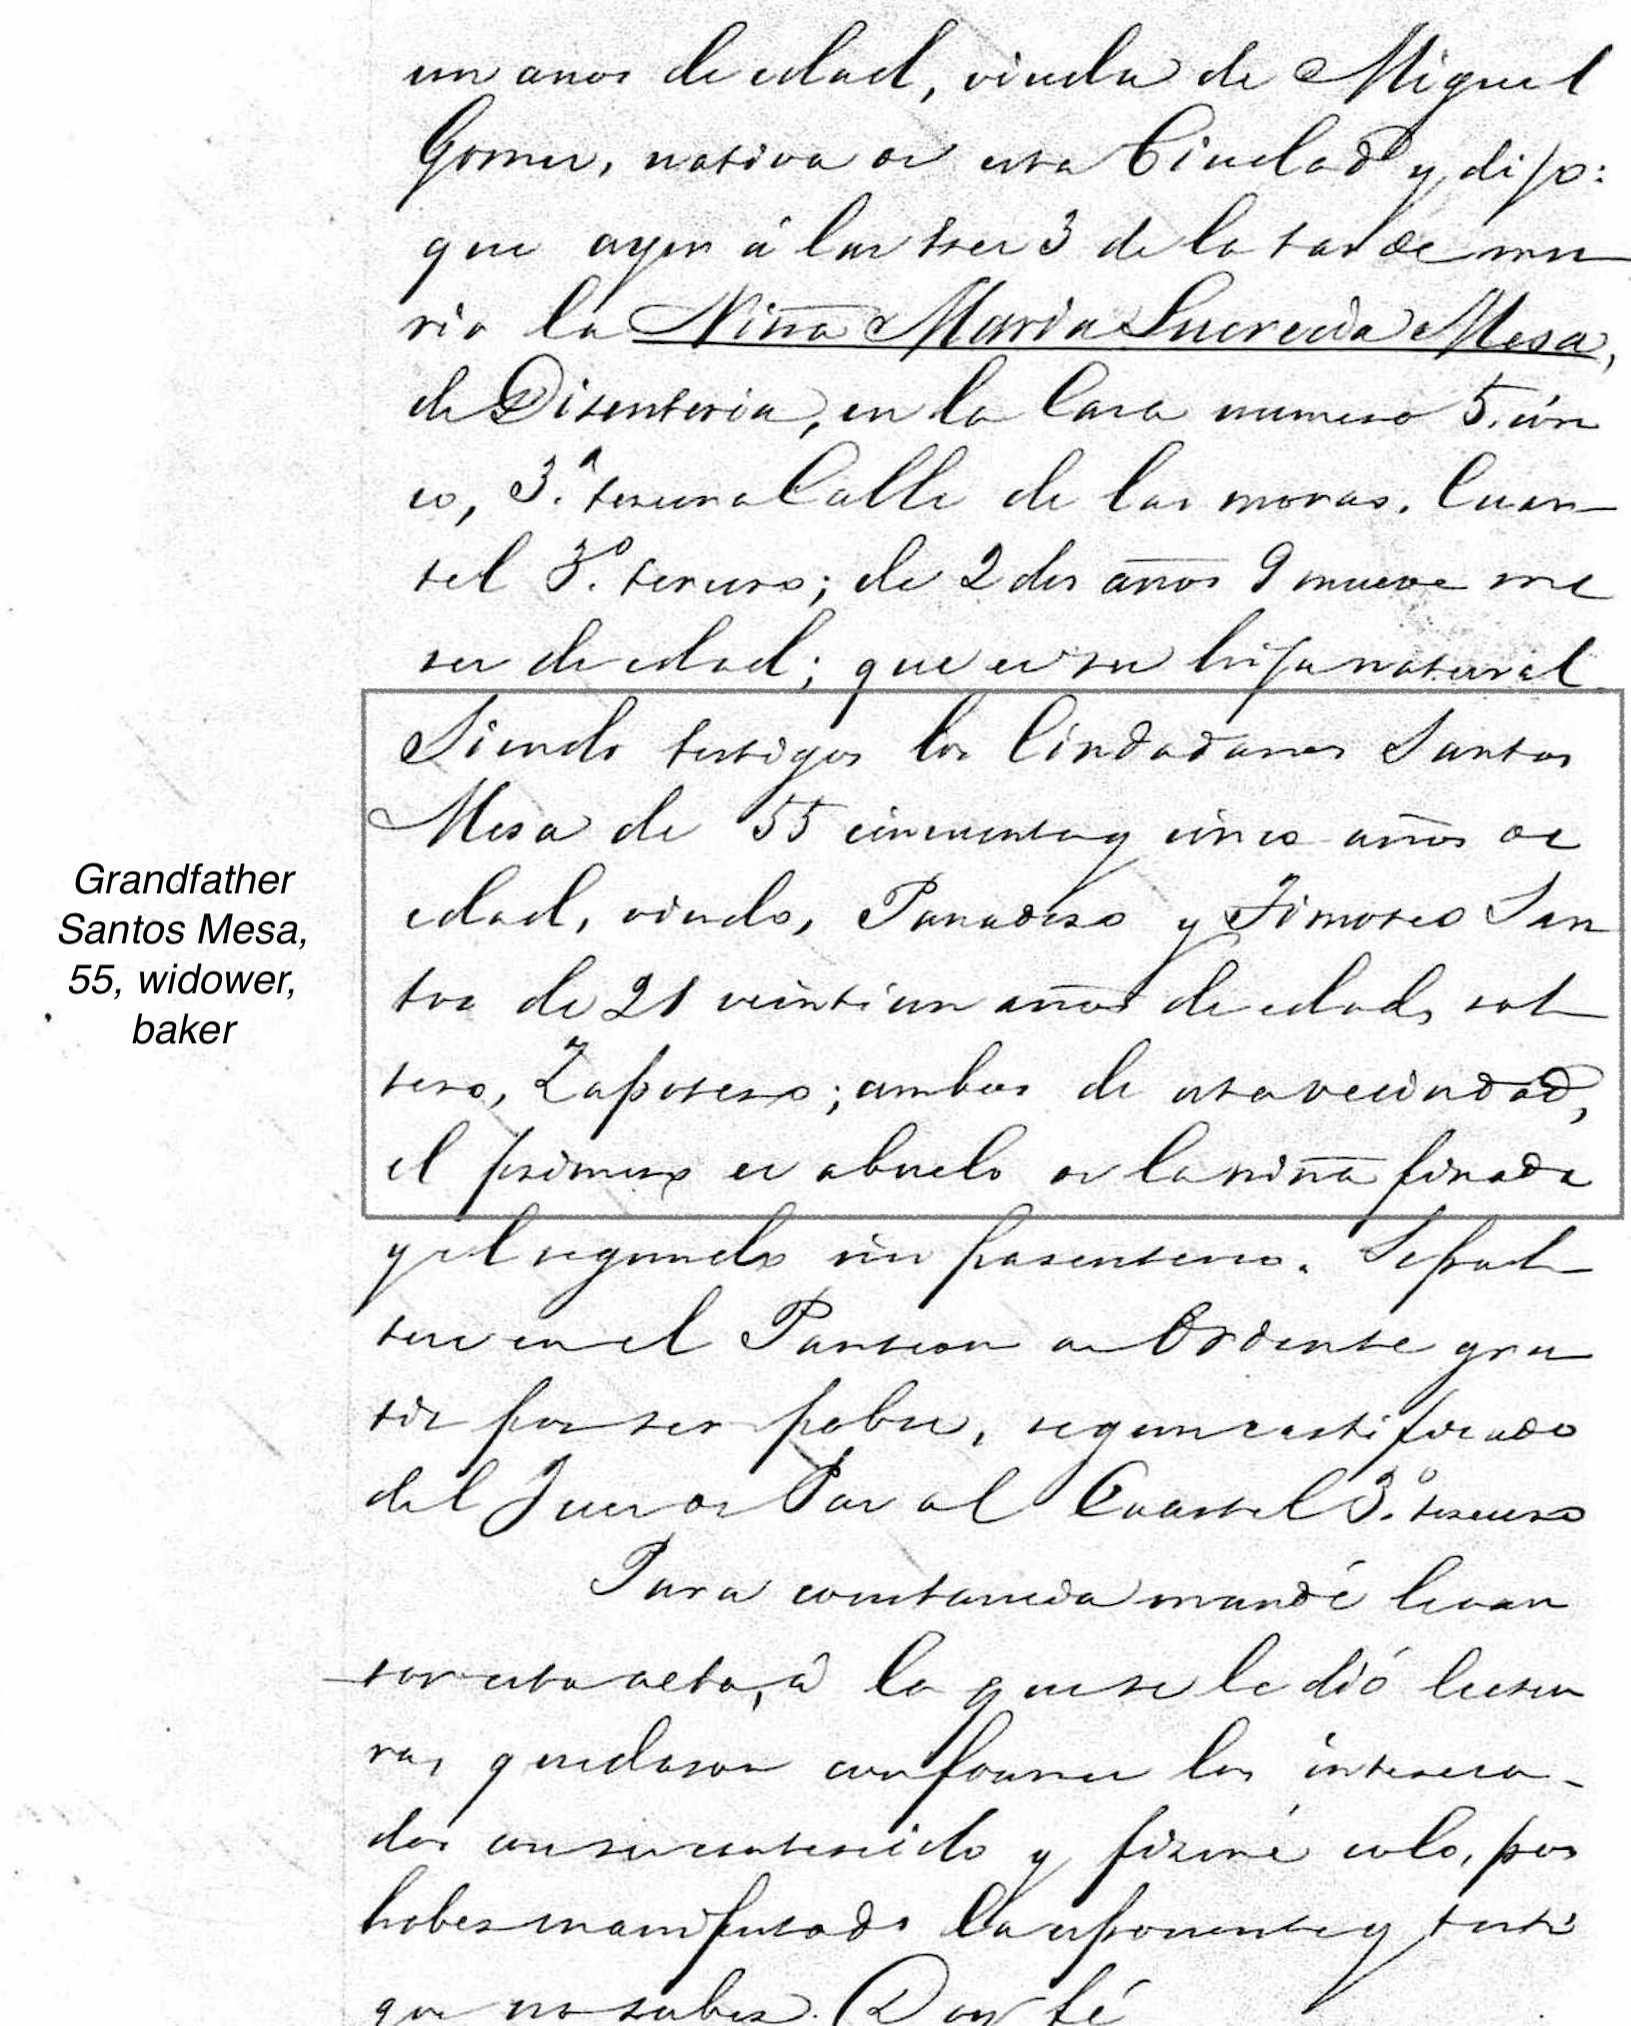 un años de edad, viuda de Miguel
Gomez, nativa de esta Ciudad y dijo:
que ayer á las tres 3 de la tarde mu
rio la Niña Maria Lucrecia Mesa,
de Disenteria, en la Casa numero 5. cin
co, 3.ª tercera Calle de las moras. Cuar
tel 3.º tercero; de 2 dos años 9 nueve me
ses de edad; que es su hija natural
Siendo testigos los Ciudadanos Santos
Mesa de 55 cincuenta y cinco años de
edad, viudo, Panadero y Timoteo San
tos de 21 veintiun años de edad, sol
tero, Zapatero; ambos de esta vecindad,
el primero es abuelo de la niña finada
y el segundo sin parentesco. Sepul
tese en el Panteon de Oriente gra
tis por ser pobre, segun certificado
del Juez de Paz al Cuartel 3.º tercero
Para constancia mandé levan
tar esta acta, á la que se le dió lectu
ra, quedaron conformes los interesa-
dos con su contenido y firmé solo, por
haber manifestado la exponente y testi
gos no saber. Doy fé
Grandfather
Santos Mesa,
55, widower,
baker